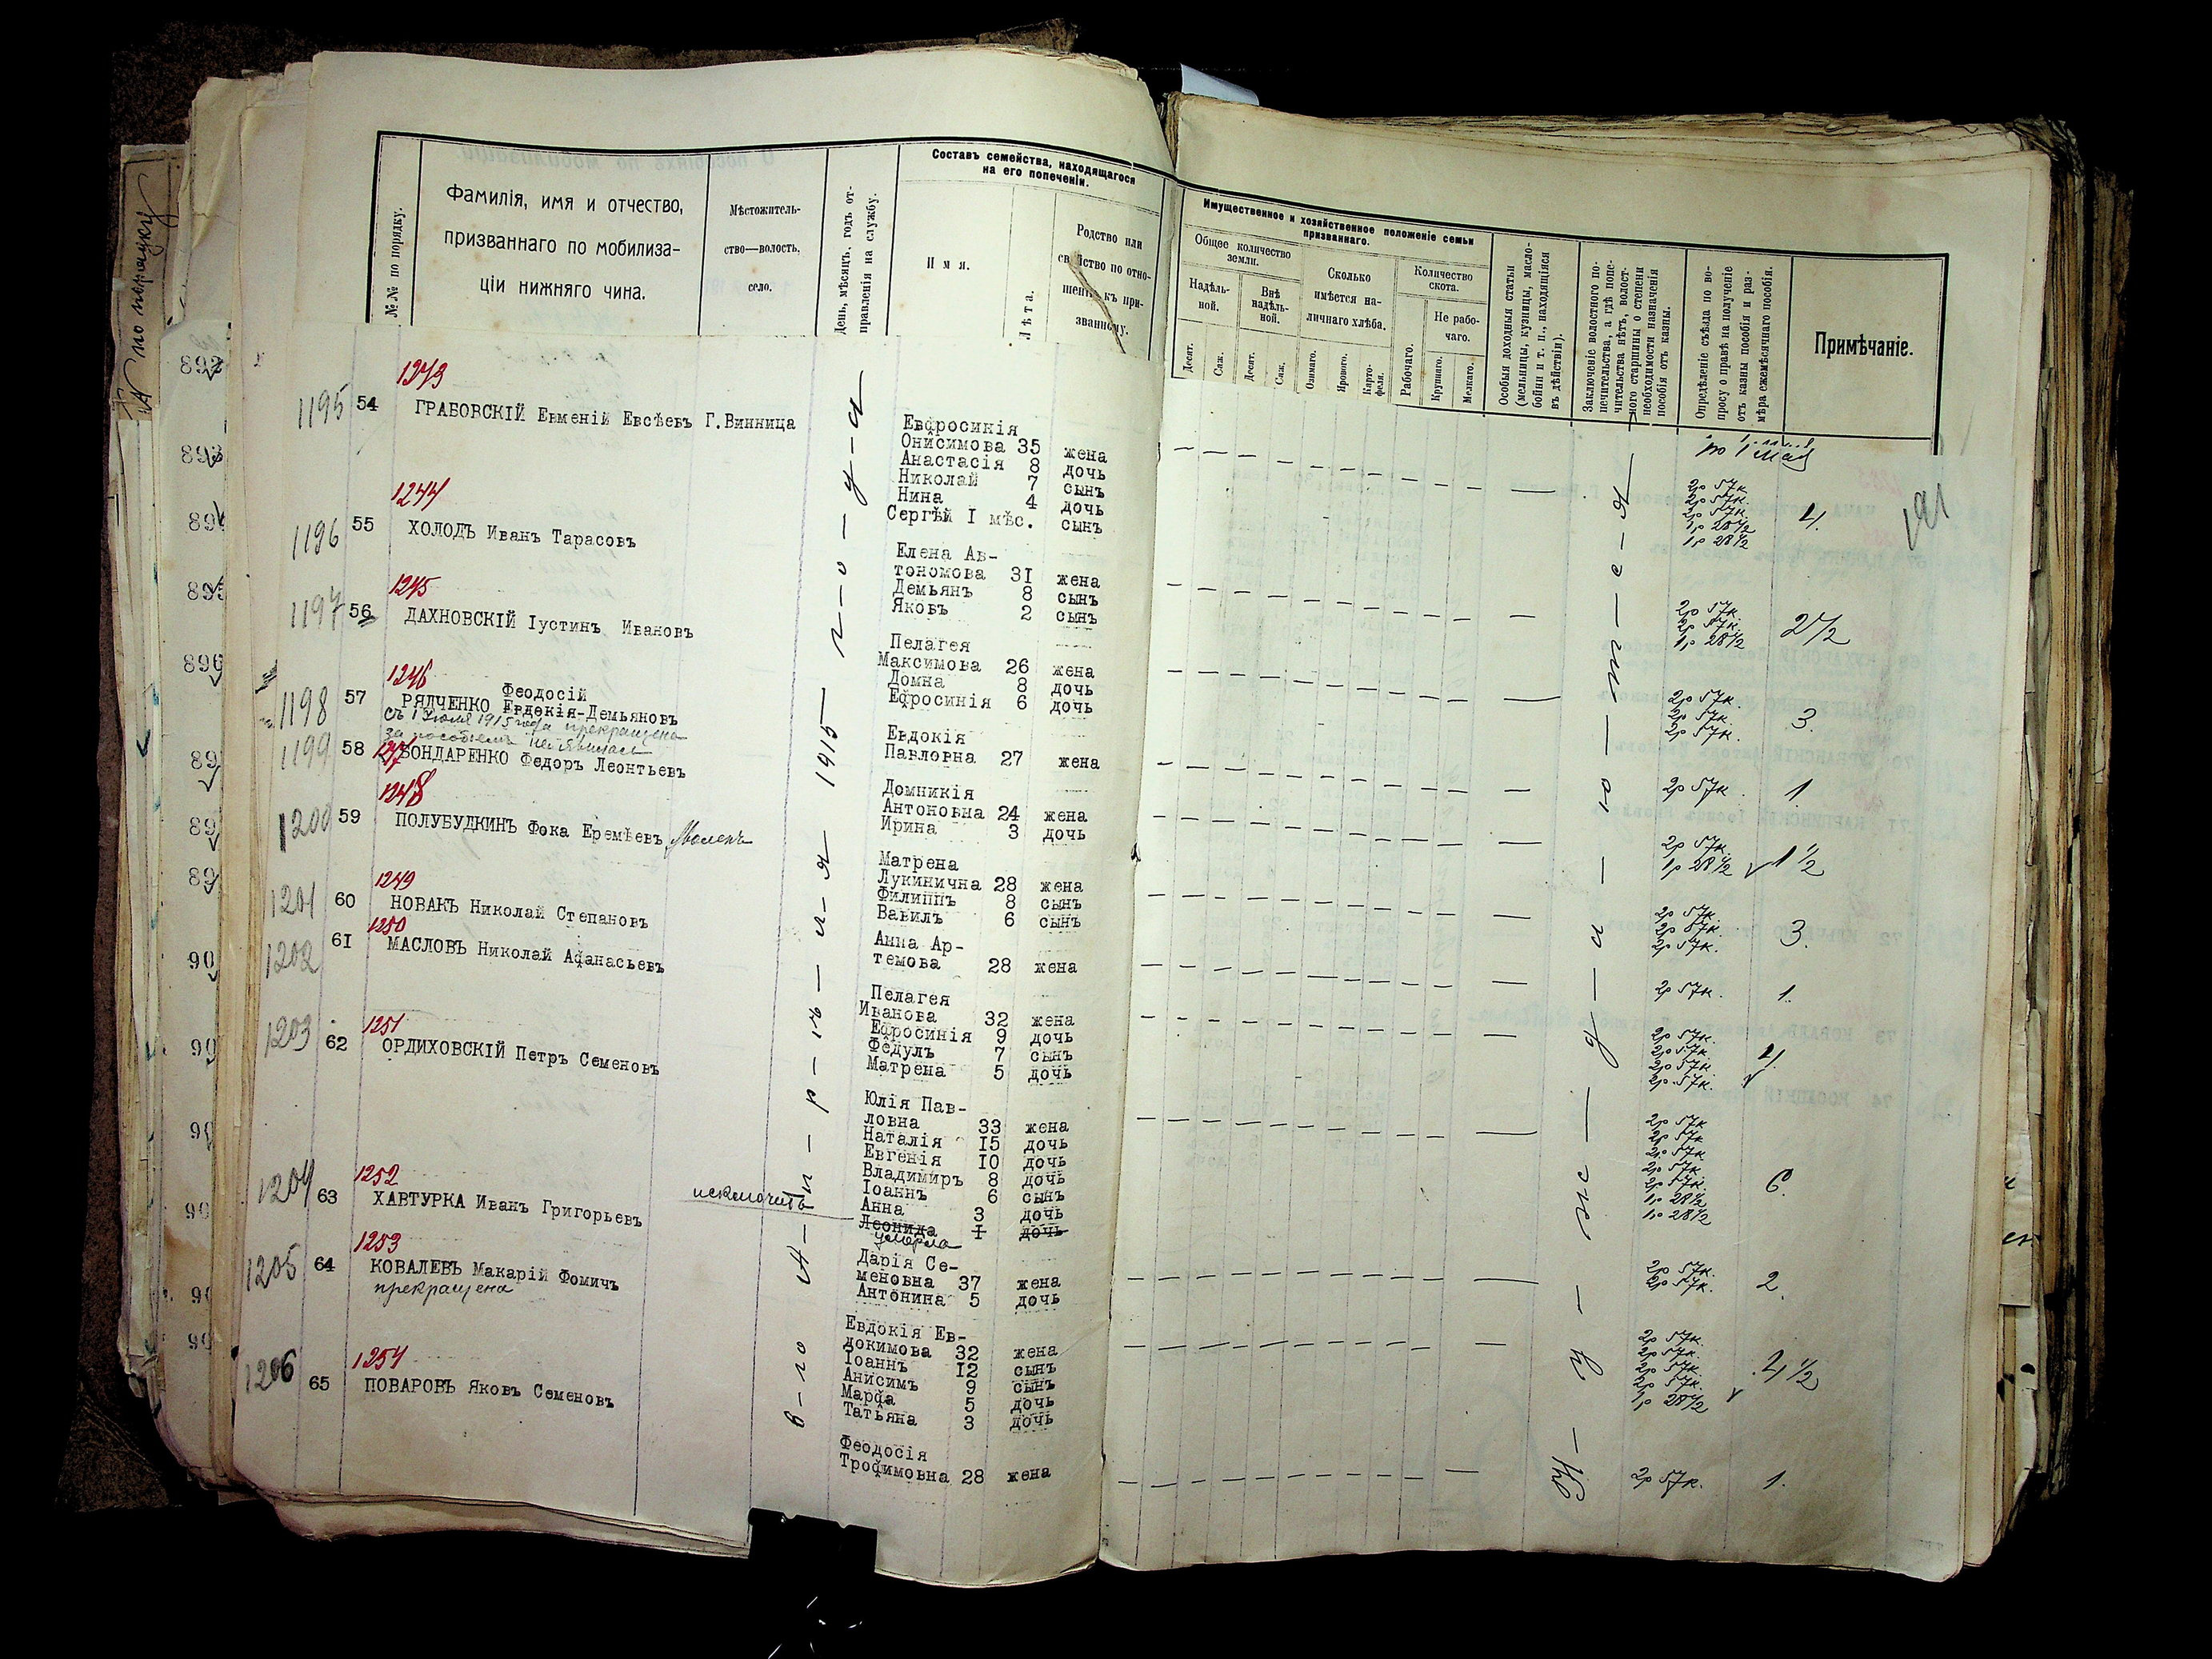 № по порядку
№№ по порядку.
Фамилія, имя и отчество,
призваннаго по мобилиза-
ціи нижняго чина.
Мѣстожитель-
ство—волость,
село.
День, мѣсяцъ, годъ от-
правленія на службу.
Составъ семейства, находящагося
на его попеченіи.
Имя.
Лѣта.
Родство или
свойство по отно-
шенію къ при-
званному.
Имущественное и хозяйственное положеніе семьи
призваннаго.
Общее количество
земли.
Надѣль-
ной.
Внѣ
надѣль-
ной.
Десят.
Саж.
Десят.
Саж.
Сколько
имѣется на-
личнаго хлѣба.
Озимаго.
Ярового.
Карто-
феля.
Количество
скота.
Рабочаго.
Не рабо-
чаго.
Крупнаго.
Мелкаго.
Особыя доходныя статьи
(мельницы, кузницы, масло-
бойни и т. п., находящіяся
въ дѣйствіи).
Заключеніе волостного по-
печительства, а гдѣ попе-
чительства нѣтъ, волост-
ного старшины о степени
необходимости назначенія
пособія отъ казны.
Опредѣленіе съѣзда по во-
просу о правѣ на полученіе
отъ казны пособія и раз-
мѣра ежемѣсячнаго пособія.
Примѣчаніе.
191
10 – А – п – р – ѣ – л – я – 1915 – г – о – д – а
Н – у – ж – д – а – ю – т – с – я
по 1 мая
1243
1195 54 ГРАБОВСКІЙ Евменій Евсѣевъ Г.Винница
Евфросинія
Онисимова 35 жена
Анастасія 8 дочь
Николай 7 сынъ
Нина 4 дочь
Сергѣй I мѣс. сынъ
2р 57к
2р 57к.
2р 57к.
1р 28½
1р 28½
4.
1244
1196 55 ХОЛОДЪ Иванъ Тарасовъ
Елена Ав-
тономова 31 жена
Демьянъ 8 сынъ
Яковъ 2 сынъ
2р 57к.
2р 57к.
1р 28½
2½
1245
1197 56 ДАХНОВСКІЙ Іустинъ Ивановъ
Пелагея
Максимова 26 жена
Домна 8 дочь
Ефросинія 6 дочь
2р 57к.
2р 57к.
2р 57к.
3.
1246
Феодосій
1198 57 РЯДЧЕНКО Евдокія-Демьяновъ
съ 1 Іюля 1915 года прекращена
за пособіемъ не явилась
Евдокія
Павловна 27 жена
2р 57к.
1.
1247
1199 58 БОНДАРЕНКО Федоръ Леонтьевъ
Домникія
Антоновна 24 жена
Ирина 3 дочь
2р 57к.
1р 28½
1½
1248
1200 59 ПОЛУБУДКИНЪ Фока Еремѣевъ уволенъ
Матрена
Лукинична 28 жена
Филиппъ 8 сынъ
Вавилъ 6 сынъ
2р 57к.
2р 57к.
2р 57к.
3.
1249
1201 60 НОВАКЪ Николай Степановъ
Анна Ар-
темова 28 жена
2р 57к.
1.
1250
1202 61 МАСЛОВЪ Николай Афанасьевъ
Пелагея
Иванова 32 жена
Ефросинія 9 дочь
Федулъ 7 сынъ
Матрена 5 дочь
2р 57к.
2р 57к.
2р 57к
2р 57к.
4.
1251
1203 62 ОРДИХОВСКІЙ Петръ Семеновъ
Юлія Пав-
ловна 33 жена
Наталія 15 дочь
Евгенія 10 дочь
Владимиръ 8 дочь
Іоаннъ 6 сынъ
Анна 3 дочь
Леонида I дочь
умерла
2р 57к
2р 57к
2р 57к
2р 57к.
2р 57к.
1р 28½
1р 28½
6.
1252
1204 63 ХАВТУРКА Иванъ Григорьевъ
исключить
Дарія Се-
меновна 37 жена
Антонина 5 дочь
2р 57к.
2р 57к.
2.
1253
1205 64 КОВАЛЕВЪ Макарій Фомичъ
прекращена
Евдокія Ев-
докимова 32 жена
Іоаннъ 12 сынъ
Анисимъ 9 сынъ
Марфа 5 дочь
Татьяна 3 дочь
2р 57к.
2р 57к.
2р 57к.
2р 57к.
1р 28½
4½
1254
1206 65 ПОВАРОВЪ Яковъ Семеновъ
Феодосія
Трофимовна 28 жена
2р 57к.
1.